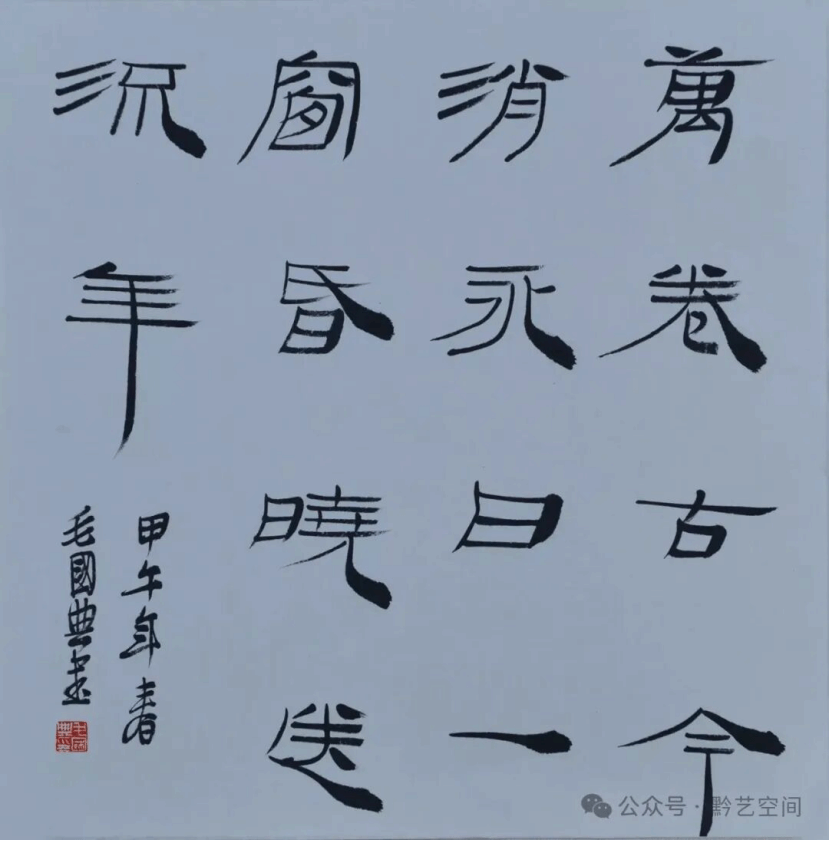 萬卷古今
消永日一
窗昏曉送
流年
甲午年春
毛國典書
公众号·黔艺空间